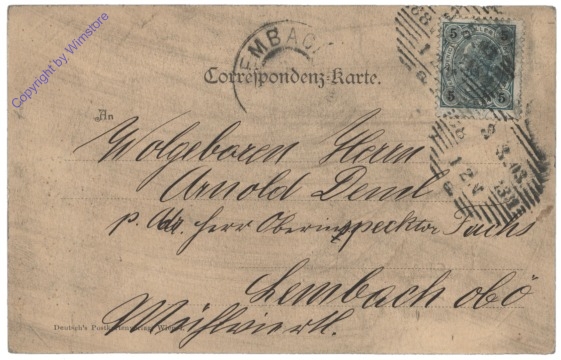 Copyright by Wimstore
LEMBACH
Correspondenz-Karte.
5 5
5 5
An
Wolgeboren Herrn
Arnold Deml
p. Adr. Herr Oberinspecktor Fuchs
Lembach obö
Mühlviertl.
Deutsch's Postkartenverlag, Wien